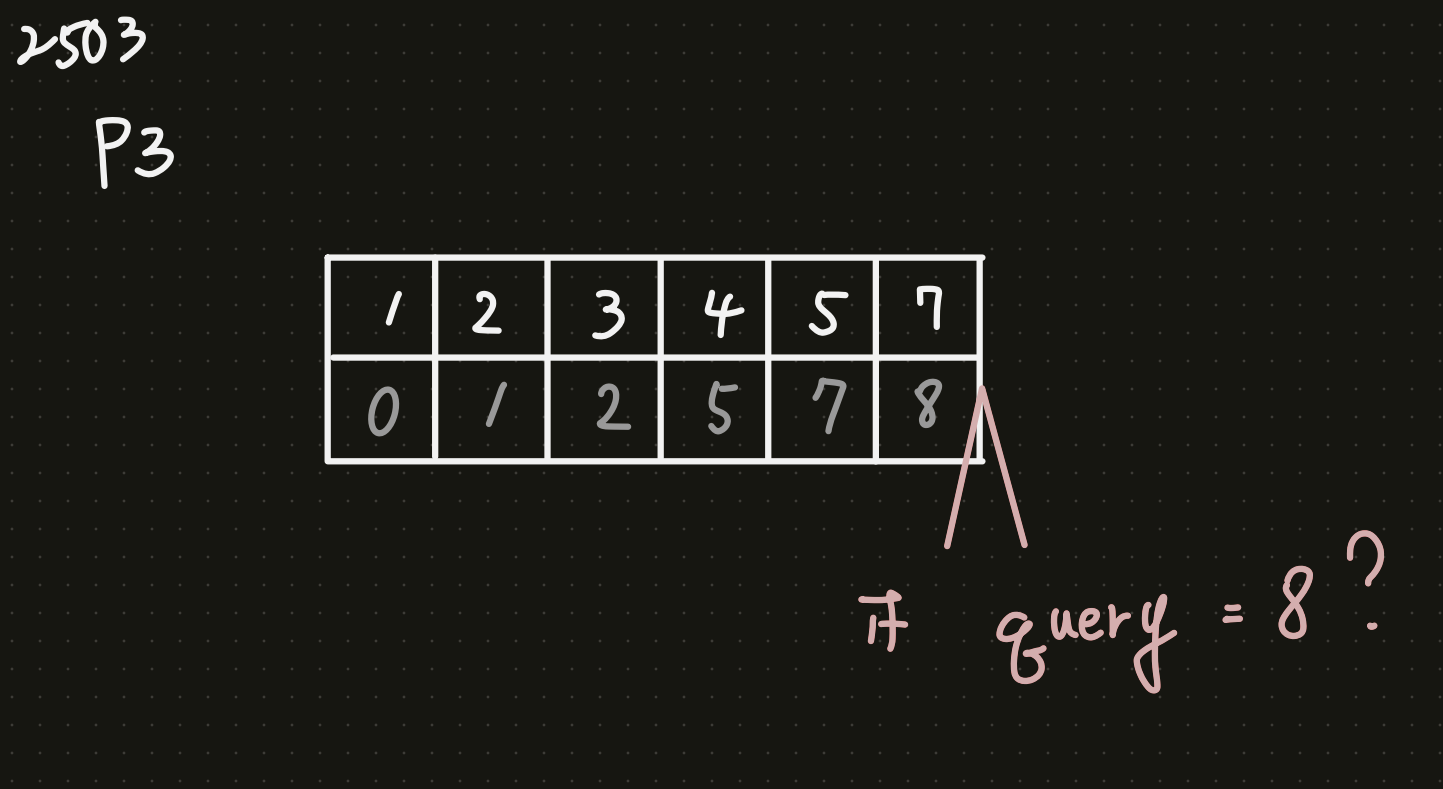 2503
P3
1 2 3 4 5 7
0 1 2 5 7 8
query = 8 ?